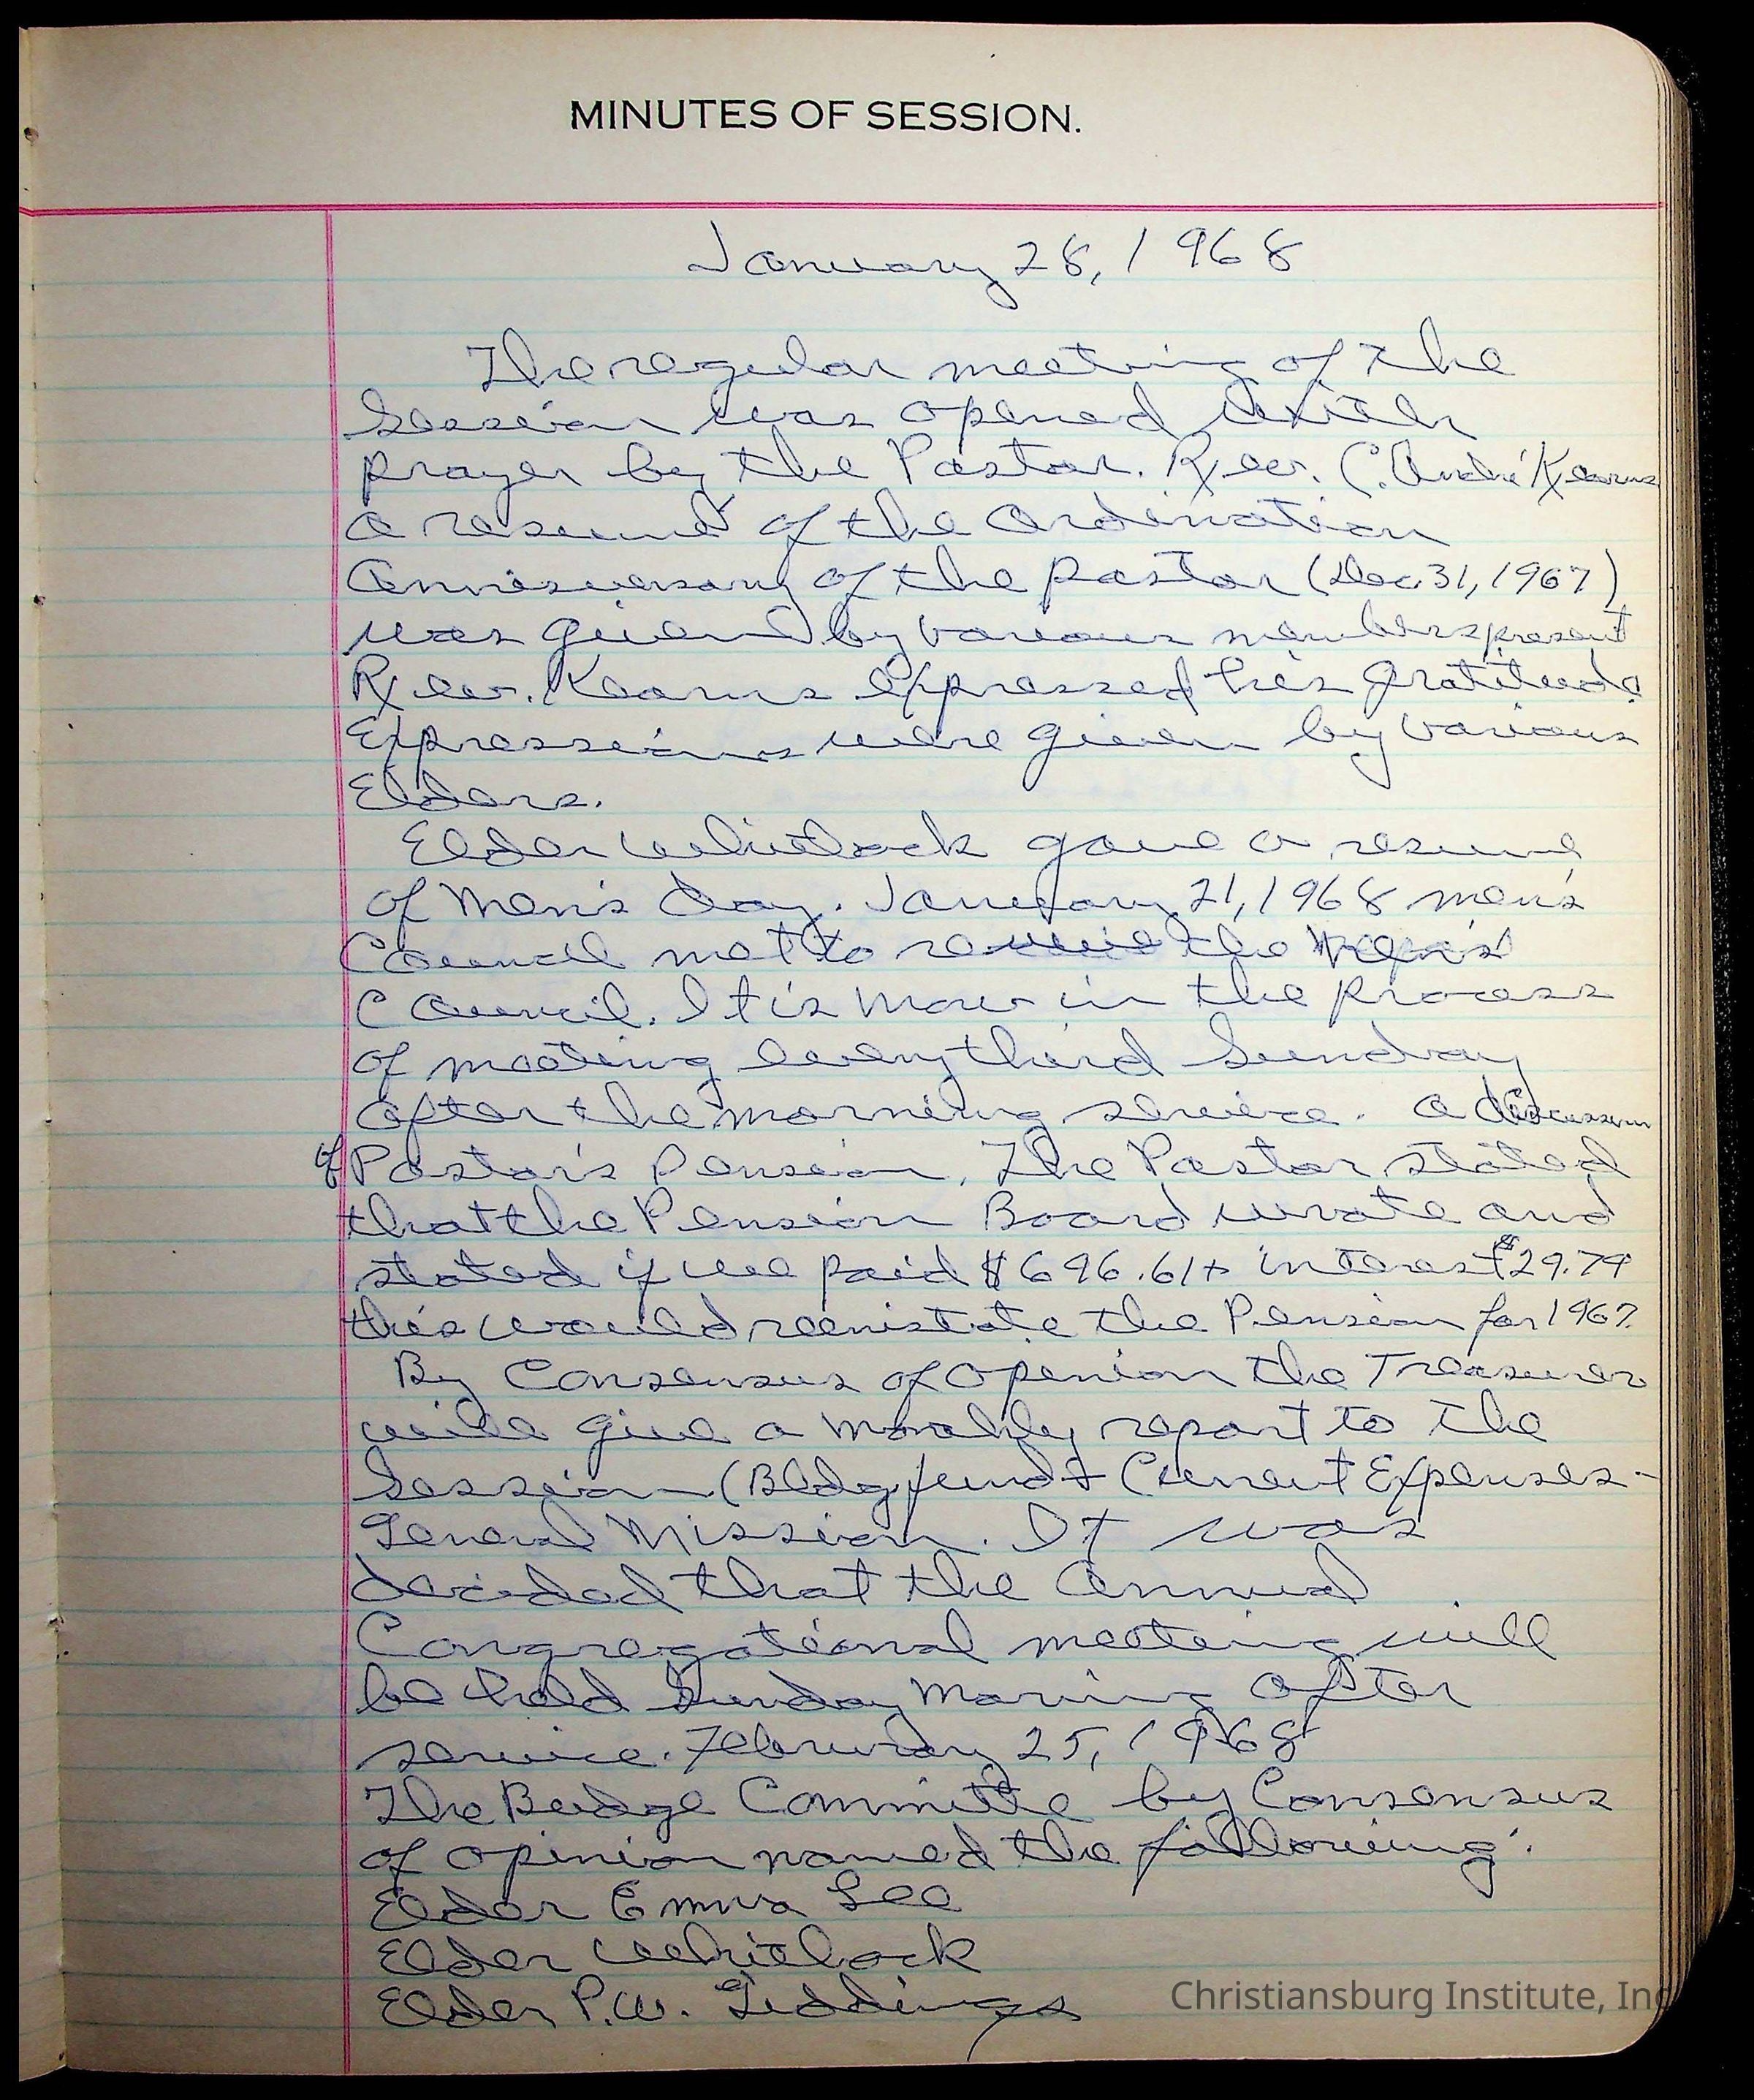 MINUTES OF SESSION.
January 28, 1968
The regular meeting of the
Session was opened with
prayer by the Pastor. Rev. C. André Kearns
a resumé of the Ordination
Anniversary of the Pastor (Dec 31, 1967)
was given by various members present
Rev. Kearns expressed his gratitude.
Expressions were given by various
Elders.
Elder Whitlock gave a resume
of Men's Day. January 21, 1968 men's
Council met to the Men's
Council. It is now in the process
of meeting every third Sunday
after the morning service. A discussion
of Pastor's Pension. The Pastor stated
that the Pension Board wrote and
stated if we paid $696.61 + interest $29.74
this would reenistate the Pension for 1967.
By Consensus of openion the Treasurer
will give a monthly report to the
Session (Bldg fund + Current Expenses -
General Mission. It was
decided that the Annual
Congregational meeting will
be held Sunday Morning after
service. February 25, 1968
The Budge Committe by Consensus
of opinion named the following:
Elder Emma Lee
Elder Whitlock
Elder P.W. Giddings
Christiansburg Institute, Inc